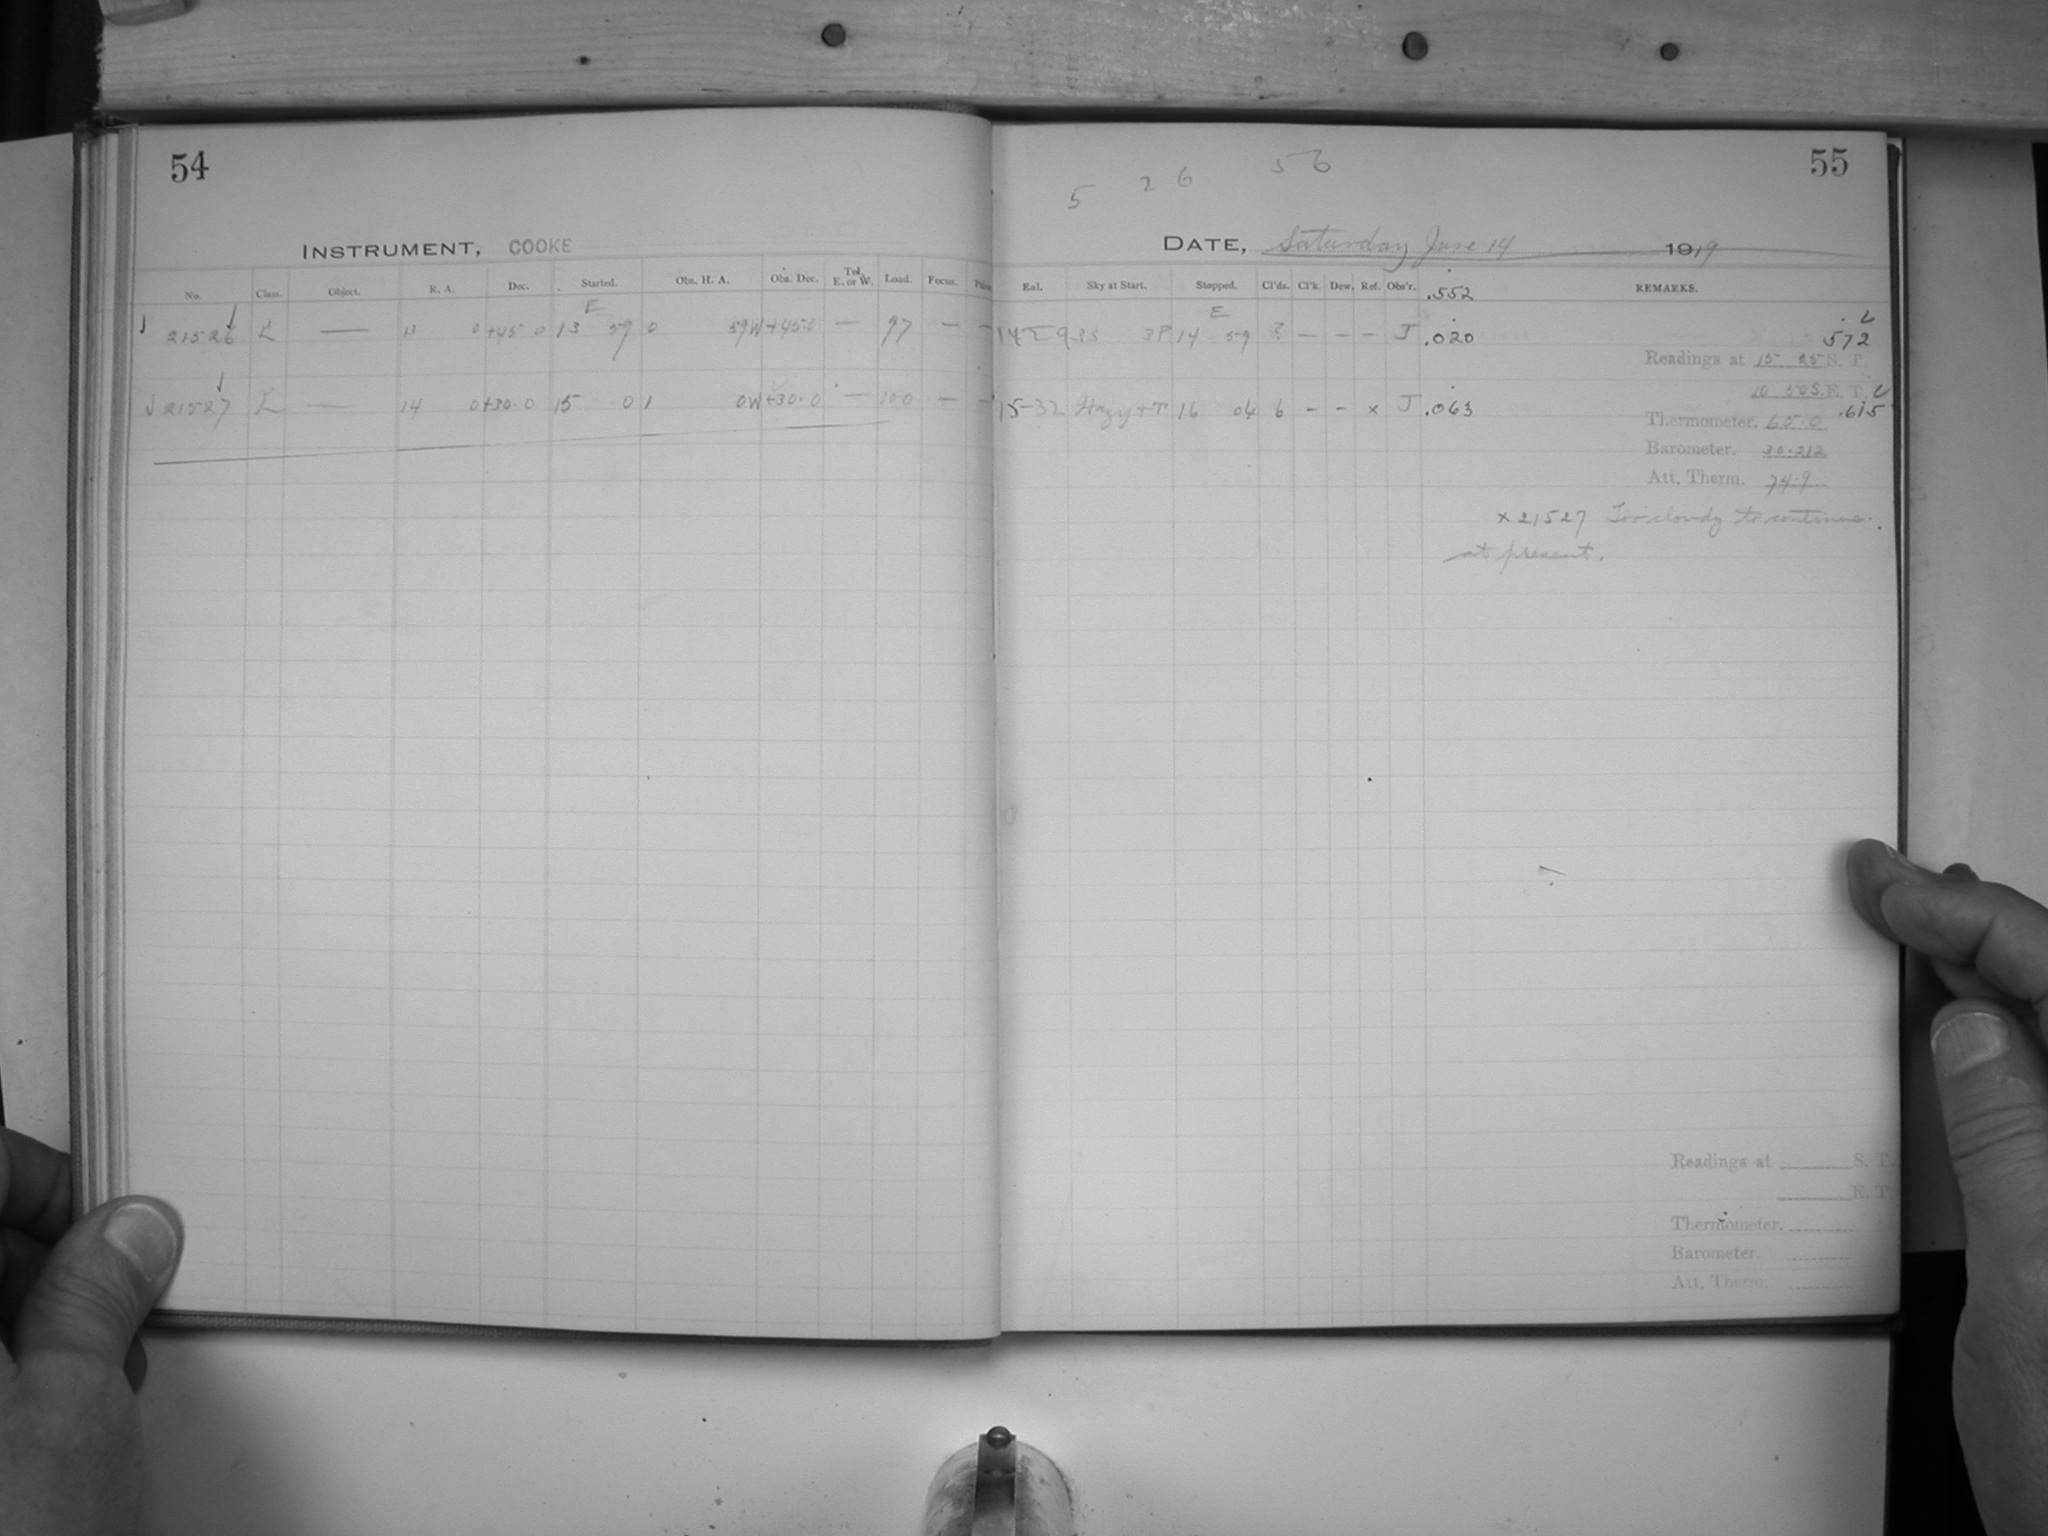 54
INSTRUMENT, COOKE
No. Class. Object. R. A. Dec. Started. Obs. H. A. Obs. Dec. Tel. E. or W. Load. Focus.
E
21526 L — 13 0 +45 0 13 59 0 59W +45.0 — 97 — —
21527 L — 14 0 +30.0 15 0 1 0W +30.0 — 100 — —
55
5 26 56
DATE, Saturday June 14 1919
Enl. Sky at Start. Stopped. Cl'ds. Cl'k. Dew. Ref. Obs'r. .552 REMARKS.
E
14 59 14 59 ? — — — J .020 .572
Readings at 15 25 S. T.
10 50 S. E. T.
15-32 Hazy + T 16 04 6 - - x J .063 .615
Thermometer. 65.0
Barometer. 30.212
Att. Therm. 74.9
x 21527 Too cloudy to continue
at present.
Readings at S. T.
E. T.
Thermometer.
Barometer.
Att. Therm.